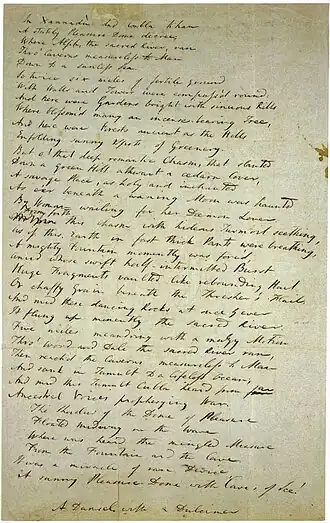 In Xannadù did Cubla Khan
A stately Pleasure-Dome decree;
Where Alph, the sacred River, ran
Thro' Caverns measureless to Man
Down to a sunless Sea.
So twice six miles of fertile ground
With Walls and Towers were compass'd round:
And here were Gardens bright with sinuous Rills
Where blossom'd many an incense-bearing Tree,
And here were Forests ancient as the Hills
Enfolding sunny Spots of Greenery.
But o! that deep romantic Chasm, that slanted
Down a green Hill athwart a cedarn Cover,
A savage Place, as holy and inchanted
As e'er beneath a waning Moon was haunted
By Woman wailing for her Daemon Lover:
From forth
this Chasm with hideous Turmoil seething,
As if this Earth in fast thick Pants were breathing,
A mighty Fountain momently was forc'd,
Amid whose swift half-intermitted Burst
Huge Fragments vaulted like rebounding Hail,
Or chaffy Grain beneath the Thresher's Flail.
And mid these dancing Rocks at once & ever
It flung up momently the sacred River.
Five miles meandring with a mazy Motion
Thro' Wood and Dale the sacred River ran,
Then reach'd the Caverns measureless to Man
And sank in Tumult to a lifeless Ocean;
And mid this Tumult Cubla heard from far
Ancestral Voices prophesying War.
The Shadow of the Dome of Pleasure
Floated midway on the Wave
Where was heard the mingled Measure
From the Fountain and the Cave.
It was a miracle of rare Device,
A sunny Pleasure-Dome with Caves of Ice!
A Damsel with a Dulcimer